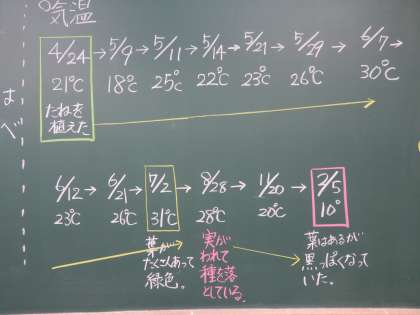 気温
4/24→5/9→5/11→5/14→5/21→5/29→6/7→
21℃ 18℃ 25℃ 22℃ 23℃ 26℃ 30℃
たねを
植えた
6/12→6/21→7/2→8/28→11/20→2/5
23℃ 26℃ 31℃ 28℃ 20℃ 10°
葉が
たくさんあって
緑色。
実が
われて
種を落
としている。
葉はあるが
黒っぽくなって
いた。